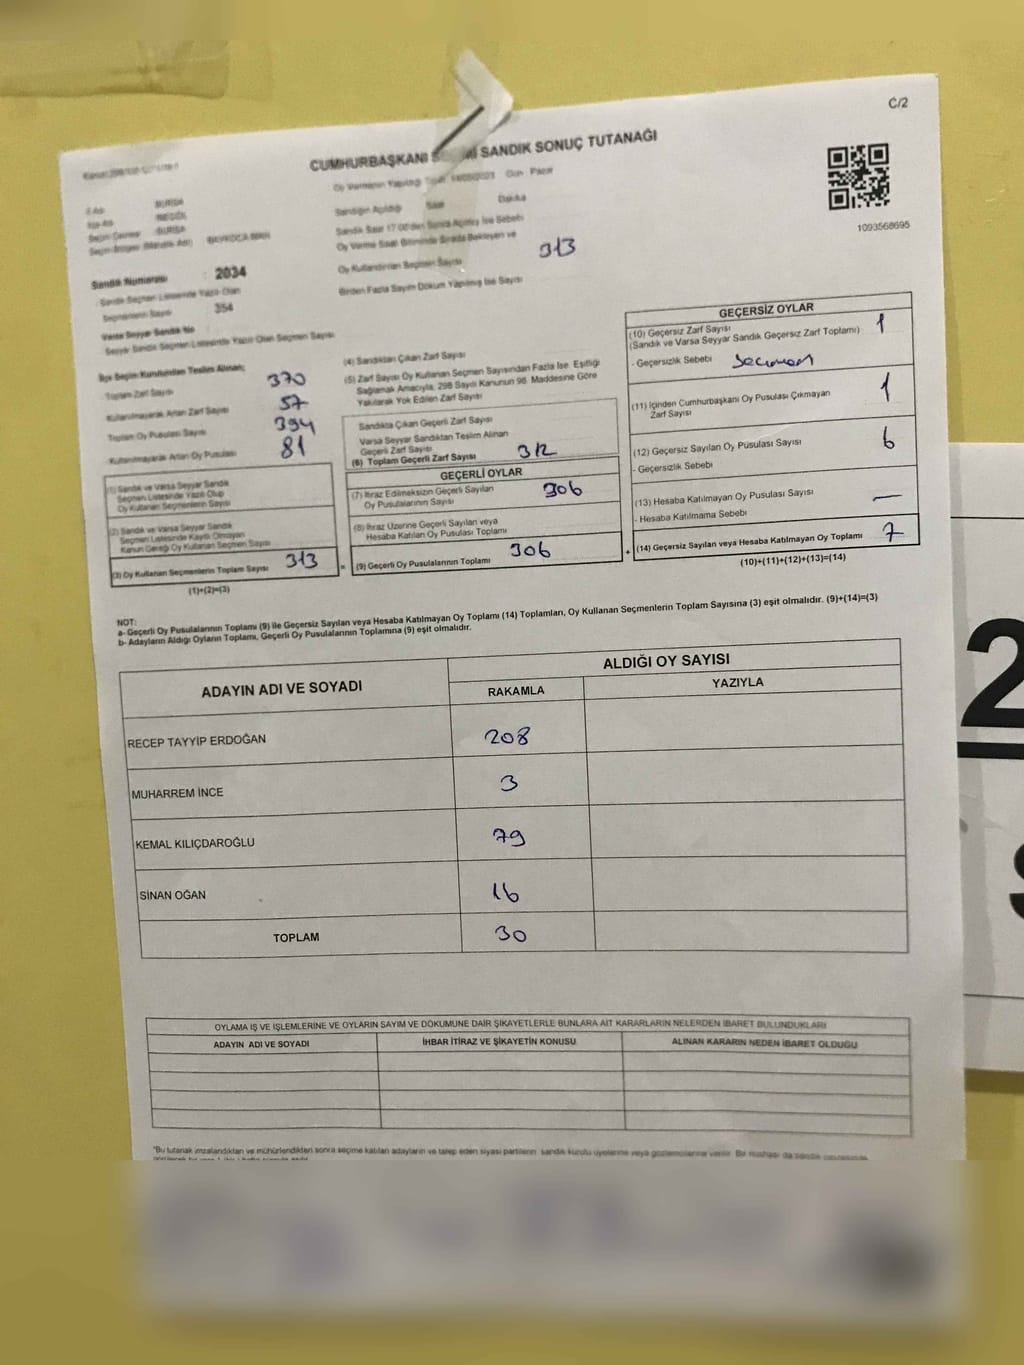 C/2
CUMHURBAŞKANI SANDIK SONUÇ TUTANAĞI
Oy Vermenin Yapıldığı Gün Pazar
BURSA
Sandığın Açıldığı Saat Dakika
BURSA
Sandık Saat 17:00'den Sonra Açılmış İse Sebebi
Oy Verme Saati Bitiminde Sırada Bekleyen ve
Oy Kullandırılan Seçmen Sayısı 313
Birden Fazla Sayım Döküm Yapılmış İse Sayısı
1093568695
Sandık Numarası : 2034
Sandık Seçmen Listesinde Yazılı Olan
Seçmenlerin Sayısı 354
Varsa Seyyar Sandık No
Seyyar Sandık Seçmen Listesinde Yazılı Olan Seçmen Sayısı
İlçe Seçim Kurulundan Teslim Alınan;
Toplam Zarf Sayısı 370
Kullanılmayarak Artan Zarf Sayısı 57
Toplam Oy Pusulası Sayısı 394
Kullanılmayarak Artan Oy Pusulası 81
(1) Sandık ve Varsa Seyyar Sandık
Seçmen Listesinde Yazılı Olup
Oy Kullanan Seçmenlerin Sayısı
(2) Sandık ve Varsa Seyyar Sandık
Seçmen Listesinde Kayıtlı Olmayan
Kanun Gereği Oy Kullanan Seçmen Sayısı
(3) Oy Kullanan Seçmenlerin Toplam Sayısı 313
(1)+(2)=(3)
(4) Sandıktan Çıkan Zarf Sayısı
(5) Zarf Sayısı Oy Kullanan Seçmen Sayısından Fazla İse, Eşitliği
Sağlamak Amacıyla, 298 Sayılı Kanunun 98. Maddesine Göre
Yakılarak Yok Edilen Zarf Sayısı
Sandıkta Çıkan Geçerli Zarf Sayısı
Varsa Seyyar Sandıktan Teslim Alınan
Geçerli Zarf Sayısı
(6) Toplam Geçerli Zarf Sayısı 312
GEÇERLİ OYLAR
(7) İtiraz Edilmeksizin Geçerli Sayılan
Oy Pusulalarının Sayısı 306
(8) İtiraz Üzerine Geçerli Sayılan veya
Hesaba Katılan Oy Pusulası Toplamı
= (9) Geçerli Oy Pusulalarının Toplamı 306
GEÇERSİZ OYLAR
(10) Geçersiz Zarf Sayısı
(Sandık ve Varsa Seyyar Sandık Geçersiz Zarf Toplamı) 1
- Geçersizlik Sebebi
(11) İçinden Cumhurbaşkanı Oy Pusulası Çıkmayan
Zarf Sayısı 1
(12) Geçersiz Sayılan Oy Pusulası Sayısı 6
- Geçersizlik Sebebi
(13) Hesaba Katılmayan Oy Pusulası Sayısı —
- Hesaba Katılmama Sebebi
+ (14) Geçersiz Sayılan veya Hesaba Katılmayan Oy Toplamı 7
(10)+(11)+(12)+(13)=(14)
NOT:
a- Geçerli Oy Pusulalarının Toplamı (9) ile Geçersiz Sayılan veya Hesaba Katılmayan Oy Toplamı (14) Toplamları, Oy Kullanan Seçmenlerin Toplam Sayısına (3) eşit olmalıdır. (9)+(14)=(3)
b- Adayların Aldığı Oyların Toplamı, Geçerli Oy Pusulalarının Toplamına (9) eşit olmalıdır.
ADAYIN ADI VE SOYADI ALDIĞI OY SAYISI
RAKAMLA YAZIYLA
RECEP TAYYİP ERDOĞAN 208
MUHARREM İNCE 3
KEMAL KILIÇDAROĞLU 79
SİNAN OĞAN 16
TOPLAM 30
OYLAMA İŞ VE İŞLEMLERİNE VE OYLARIN SAYIM VE DÖKÜMÜNE DAİR ŞİKAYETLERLE BUNLARA AİT KARARLARIN NELERDEN İBARET BULUNDUKLARI
ADAYIN ADI VE SOYADI İHBAR İTİRAZ VE ŞİKAYETİN KONUSU ALINAN KARARIN NEDEN İBARET OLDUĞU
*Bu tutanak imzalandıktan ve mühürlendikten sonra seçime katılan adayların ve talep eden siyasi partilerin sandık kurulu üyelerine veya gözlemcilerine verilir. Bir nüshası da sandık
2